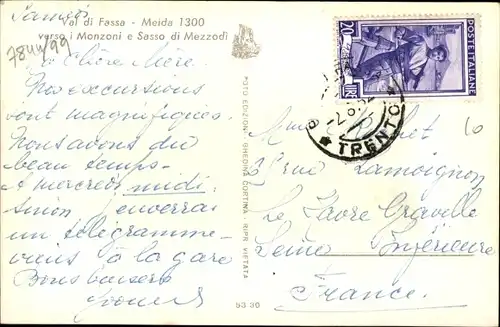 Samedi
Val di Fassa - Meida 1300
verso i Monzoni e Sasso di Mezzodì
7844/99
Chère Mère.
Nos excursions
sont magnifiques.
Nous avons du
beau temps.
A mercredi midi
sinon j'enverrai
un télégramme.
viens à la gare
Bons baisers
FOTO EDIZIONI GHEDINA CORTINA - RIPR. VIETATA
53 36
POSTE ITALIANE
20
LIRE
TRENTO
Mme
10
Rue Lamoignon
Le Havre Graville
Seine Inférieure
France.